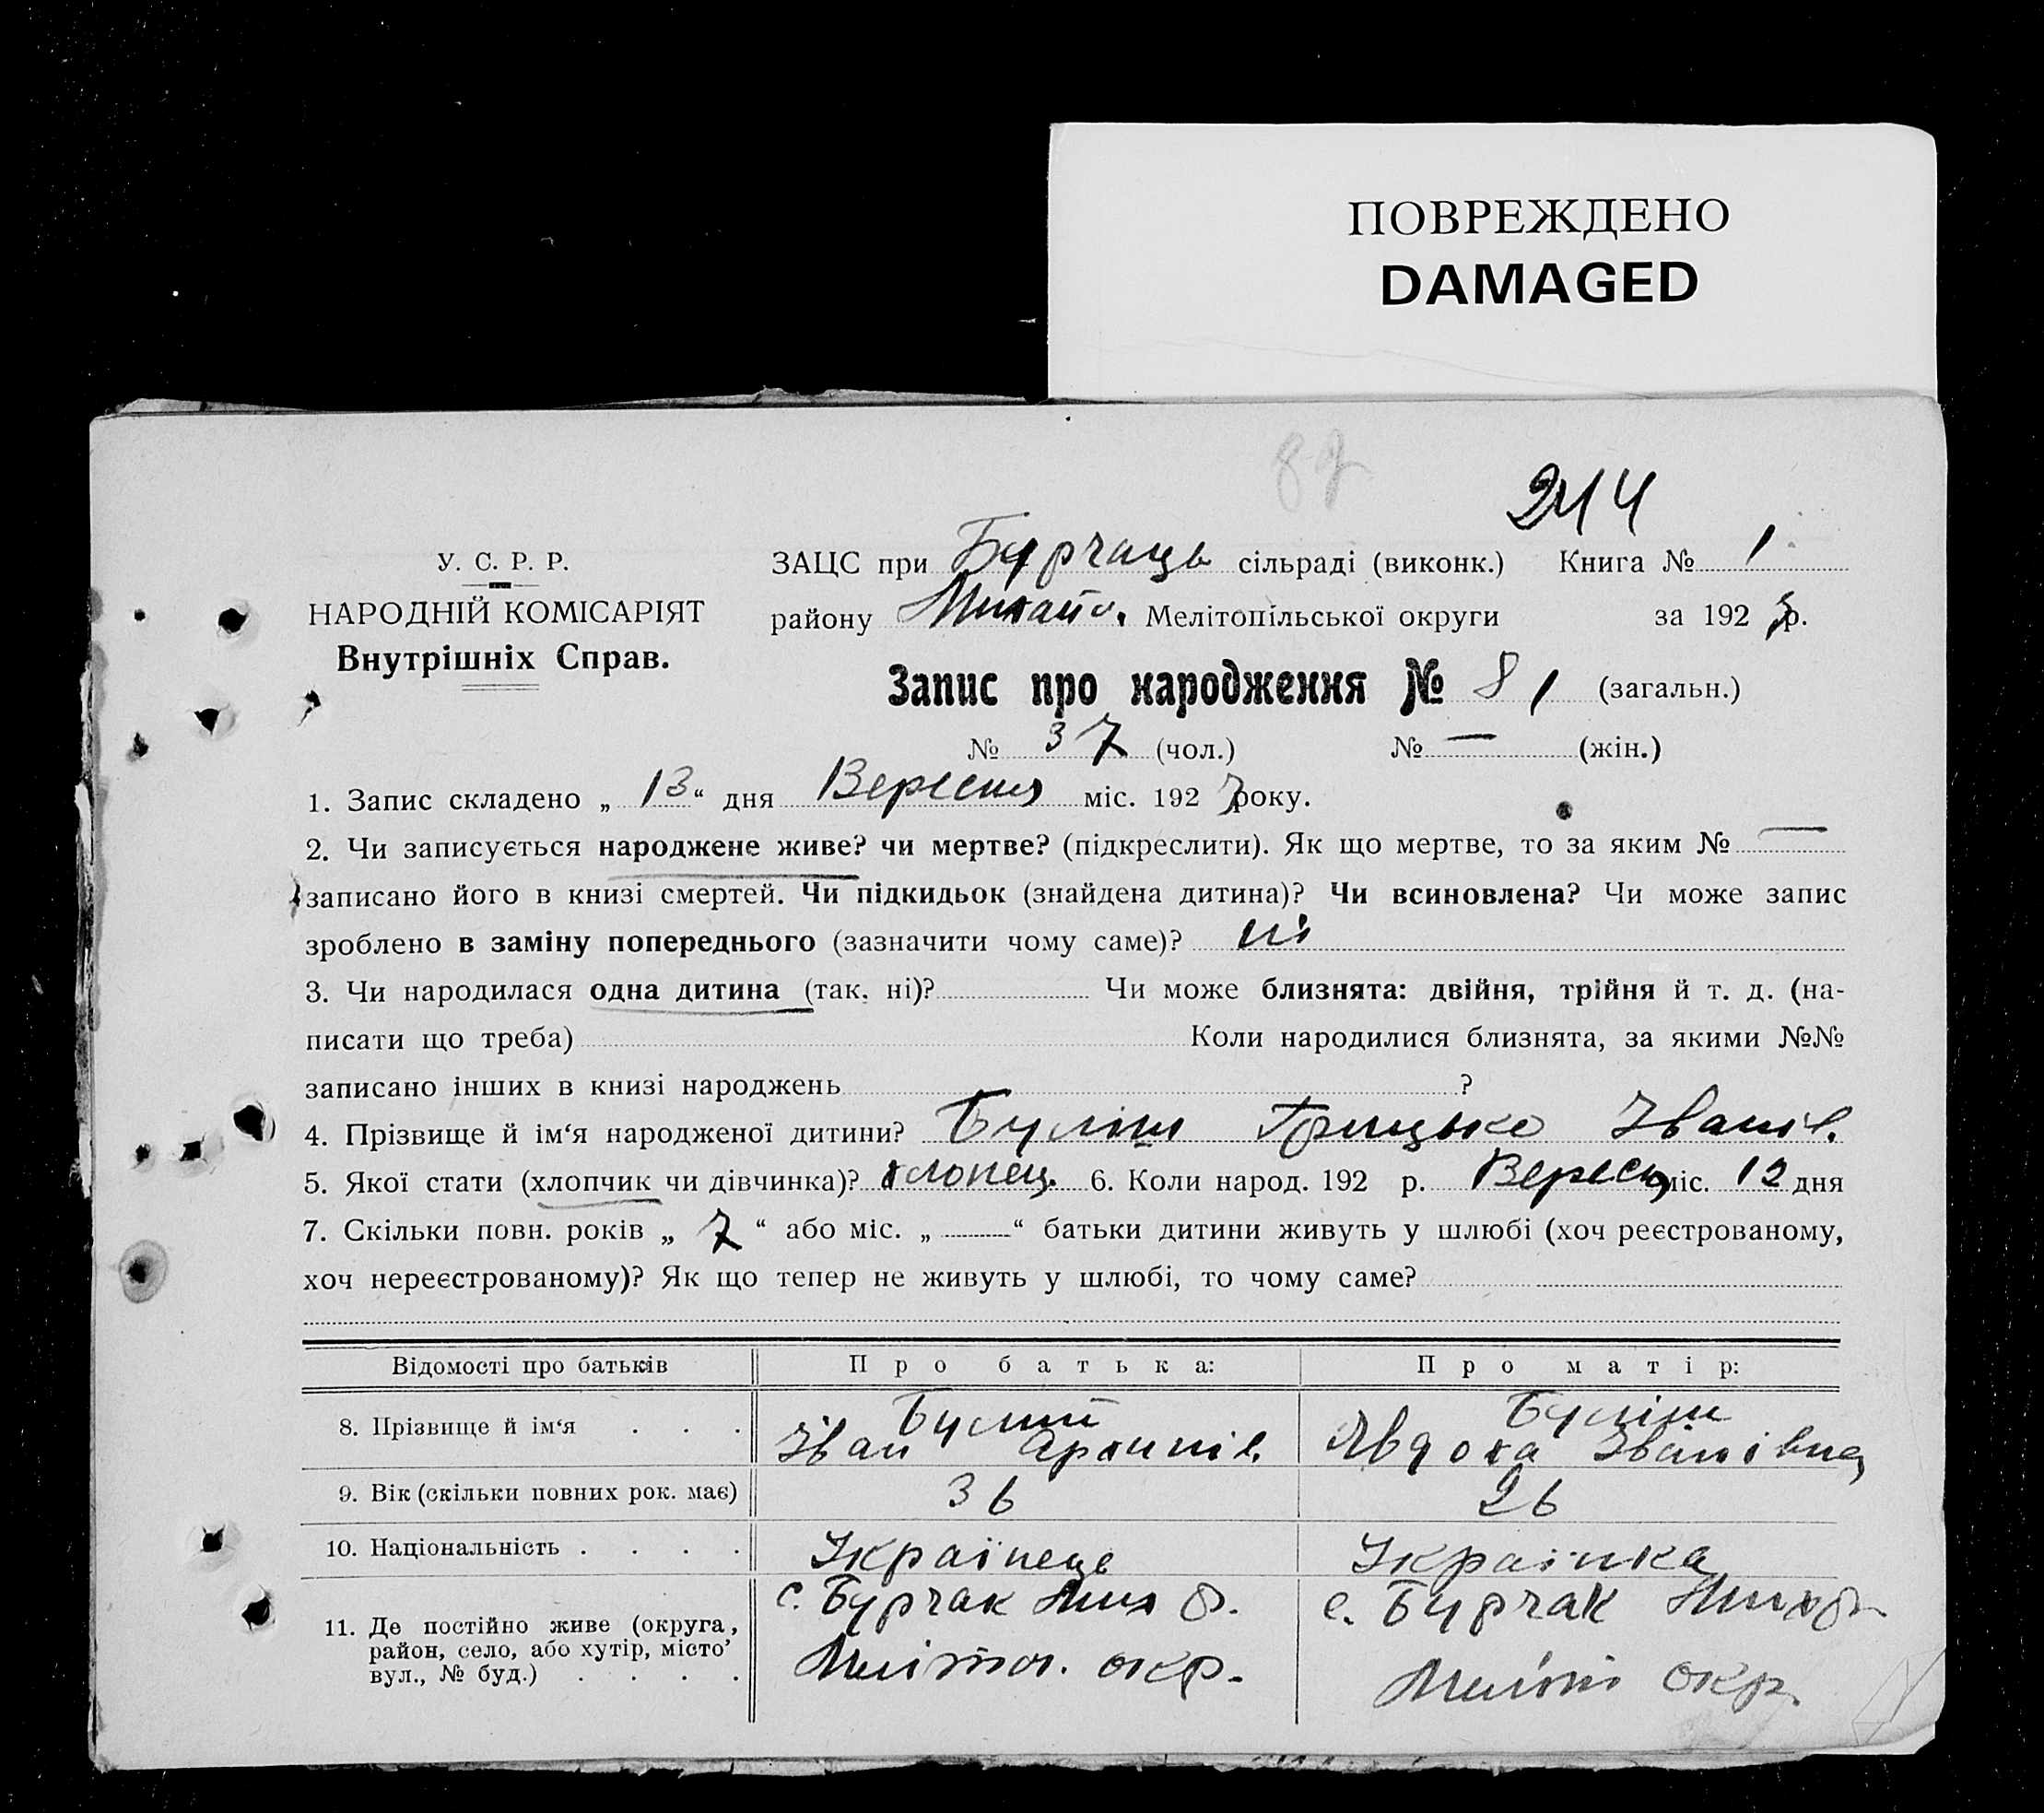 ПОВРЕЖДЕНО
DAMAGED
244
У. С. Р. Р.
НАРОДНІЙ КОМІСАРІЯТ
Внутрішніх Справ.
ЗАЦС при Бурчаць сільраді (виконк.) Книга № 1
району Михайл. Мелітопільської округи за 192 р.
Запис про народження № 81 (загальн.)
№ 37 (чол.) № — (жін.)
1. Запис складено „ 13 “ дня Вересня міс. 1927 року.
2. Чи записується народжене живе? чи мертве? (підкреслити). Як що мертве, то за яким № —
записано його в книзі смертей. Чи підкидьок (знайдена дитина)? Чи всиновлена? Чи може запис
зроблено в заміну попереднього (зазначити чому саме)? ні
3. Чи народилася одна дитина (так, ні)? Чи може близнята: двійня, трійня й т. д. (на-
писати що треба) Коли народилися близнята, за якими №№
записано інших в книзі народжень ?
4. Прізвище й ім‘я народженої дитини? Грицько Іванів.
5. Якої стати (хлопчик чи дівчинка)? хлопец. 6. Коли народ. 192 р. Вересня міс. 12 дня
7. Скільки повн. років „ 7 “ або міс. „ — “ батьки дитини живуть у шлюбі (хоч реєстрованому,
хоч нереєстрованому)? Як що тепер не живуть у шлюбі, то чому саме?
Відомості про батьків Про батька: Про матір:
8. Прізвище й ім‘я . . .
Іван Архипів. Явдоха Іванівна
9. Вік (скільки повних рок. має) 36 26
10. Національність . . . . Українець Українка
11. Де постійно живе (округа, район, село, або хутір, місто’ вул., № буд.) . . . .
с. Бурчак Мих р. с. Бурчак Мих р.
Меліто. окр. Меліт окр.